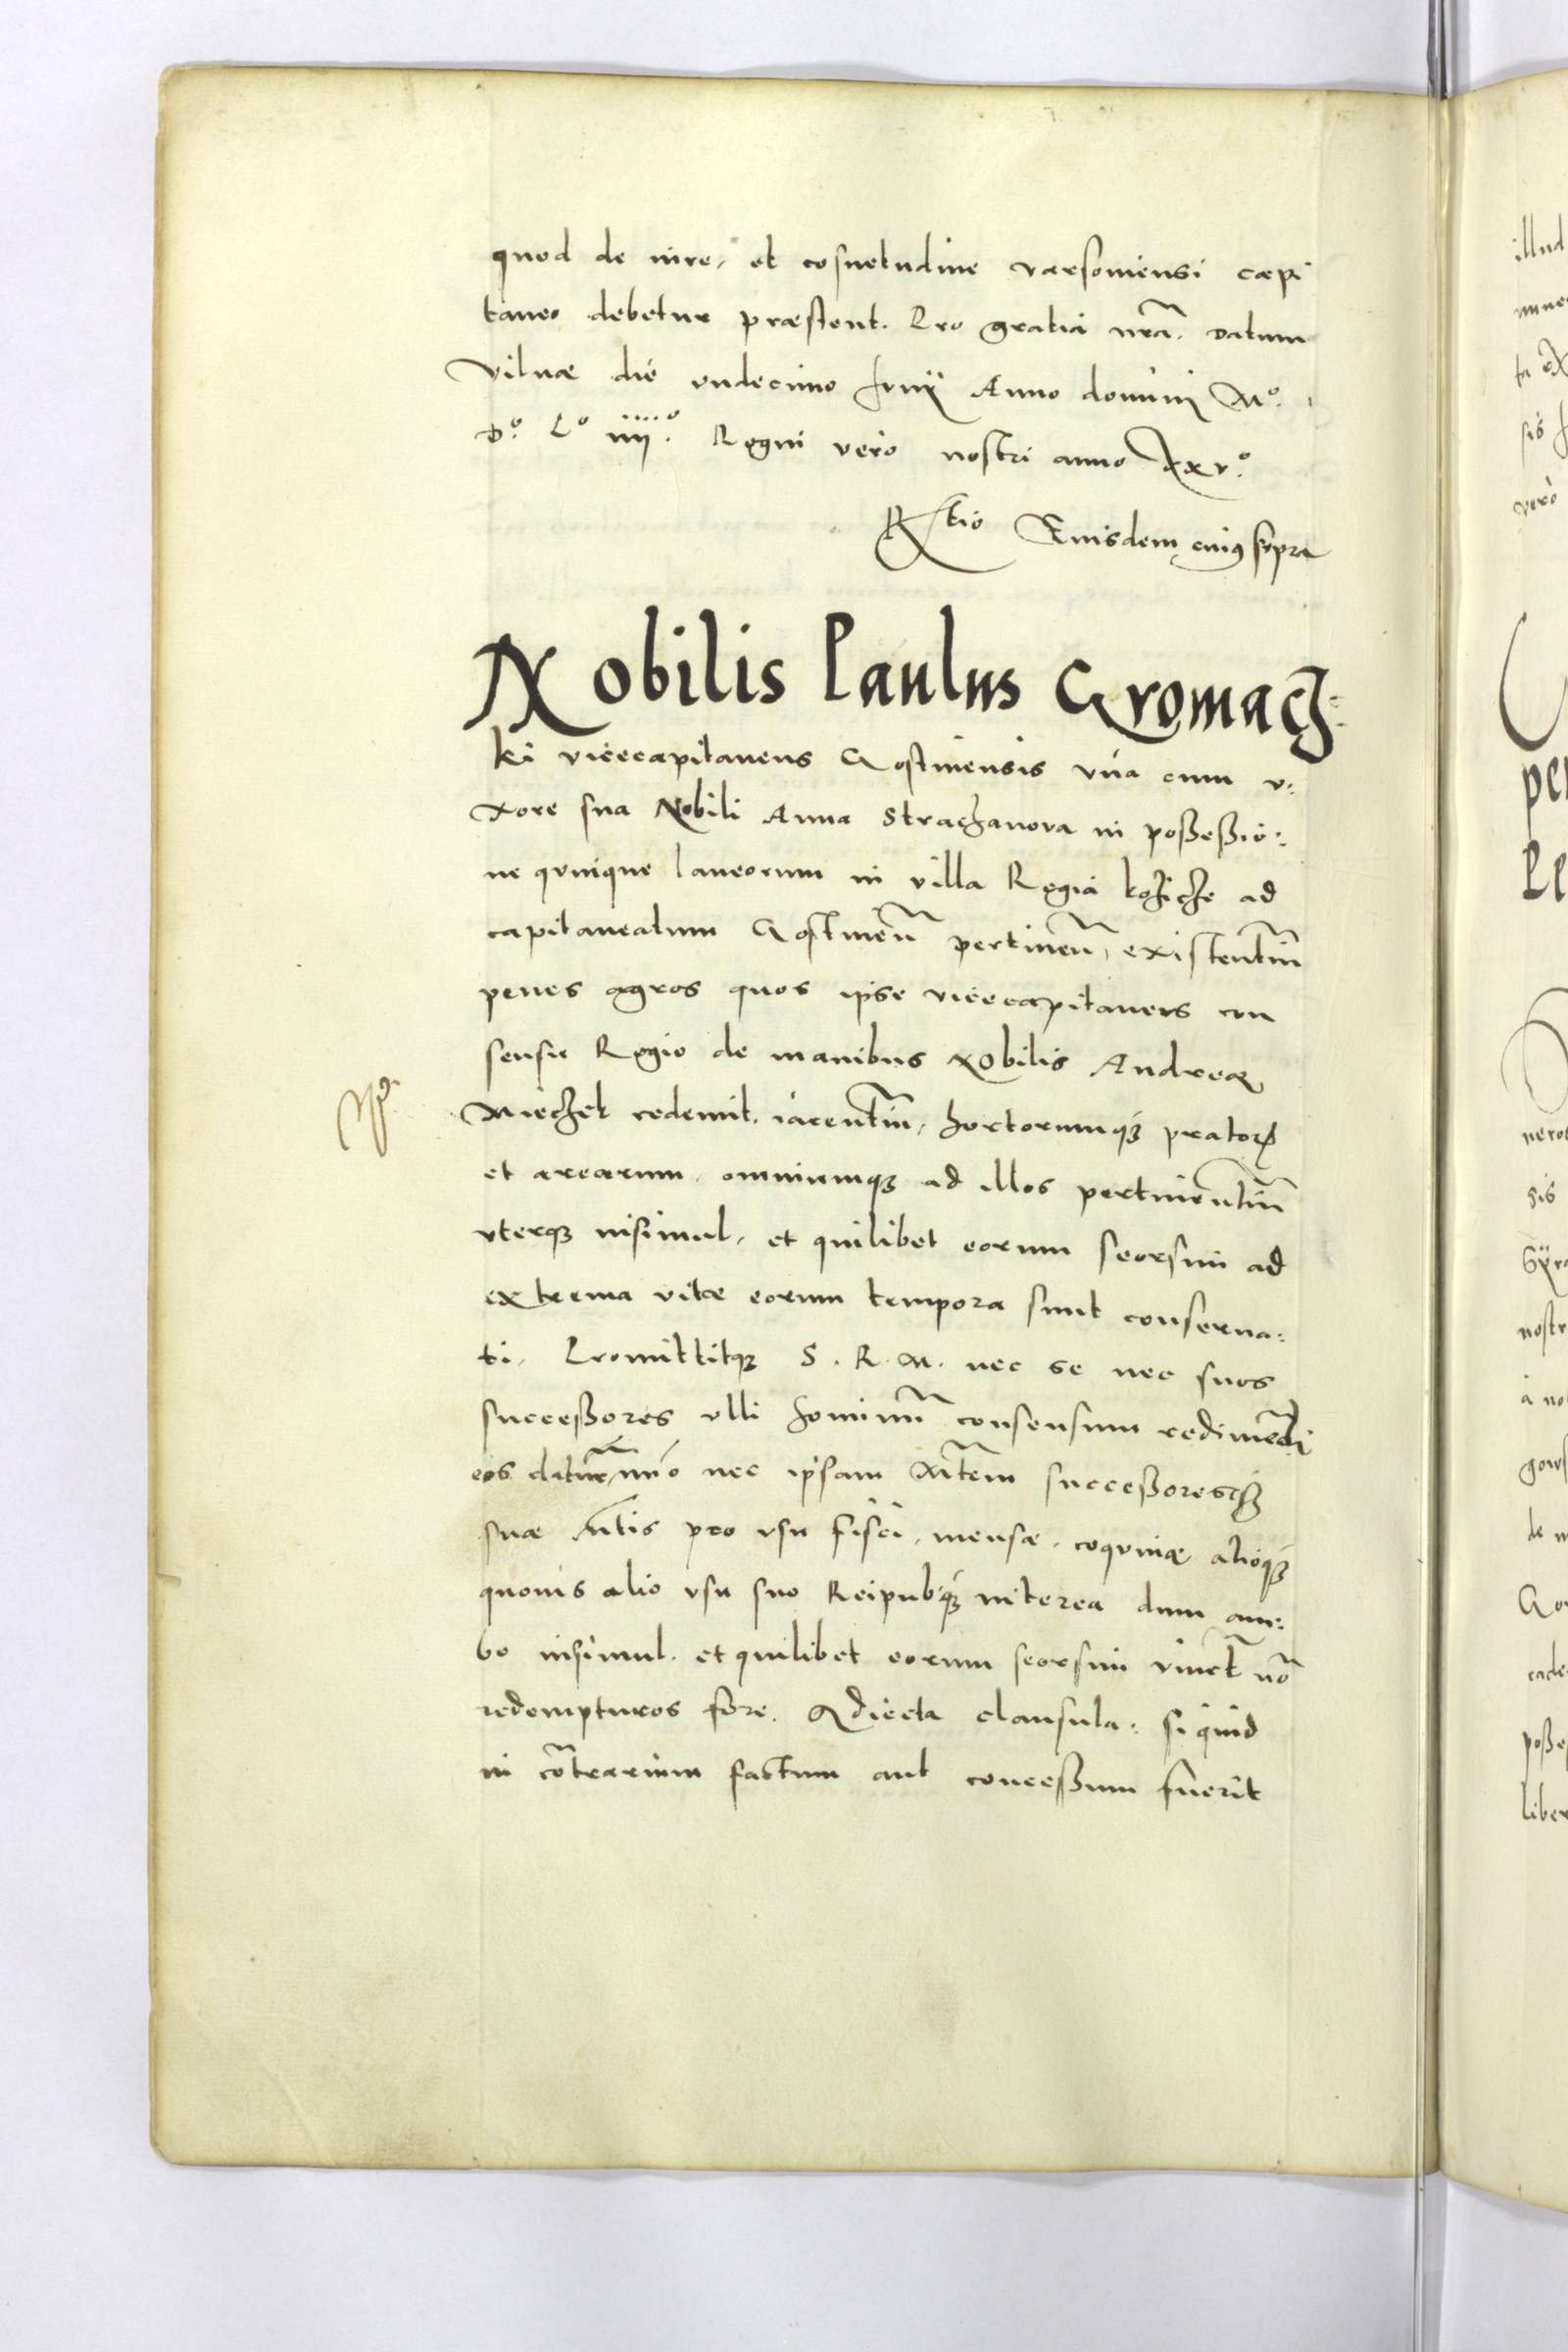 quod de iure, et cosuetudine varsoviensi capi
taneo debetur præstent. Pro gratia nr̃a. Datum
Vilnæ die undecimo Junij Anno domini Mº.
Dº. Lº iiijº. Regni vero nostri anno xxvº.
R̃tio Eiusdem cuiꝰ supra
Nobilis Paulus Gromacz:
ki vicecapitaneus Gostinensis una cum v:
xore sua Nobili Anna Strachanova in possessio:
ne quinque laneorum in villa Regia kozicze ad
capitaneatum Gostineñ pertineñ, existentiũ
penes agros quos ipse vicecapitaneus con
sensu Regio de manibus Nobilis Andreæ
Miechek redemit. iacentiũ, hortorumqꝫ pratorꝝ
et arearum, omniumqꝫ ad illos pertinentiũ
vterqꝫ insimul, et quilibet eorum seorsim ad
extrema vitæ eorum tempora sunt conserva:
ti. Promittitqꝫ S. R. M. nec se nec suos
successores ulli hominũ consensum redimẽdi
eos daturũ, imo nec ipsam Mtem successoresqꝫ
suæ Mtis pro usu fisci, mensæ, coquinæ alioqꝫ
quovis alio usu suo Reipubqꝫ interea dum am:
bo insimul. et quilibet eorum seorsim vivẽt nõ
redempturos fore. Adiecta clausula: si quid
in cõtrarium factum aut concessum fuerit